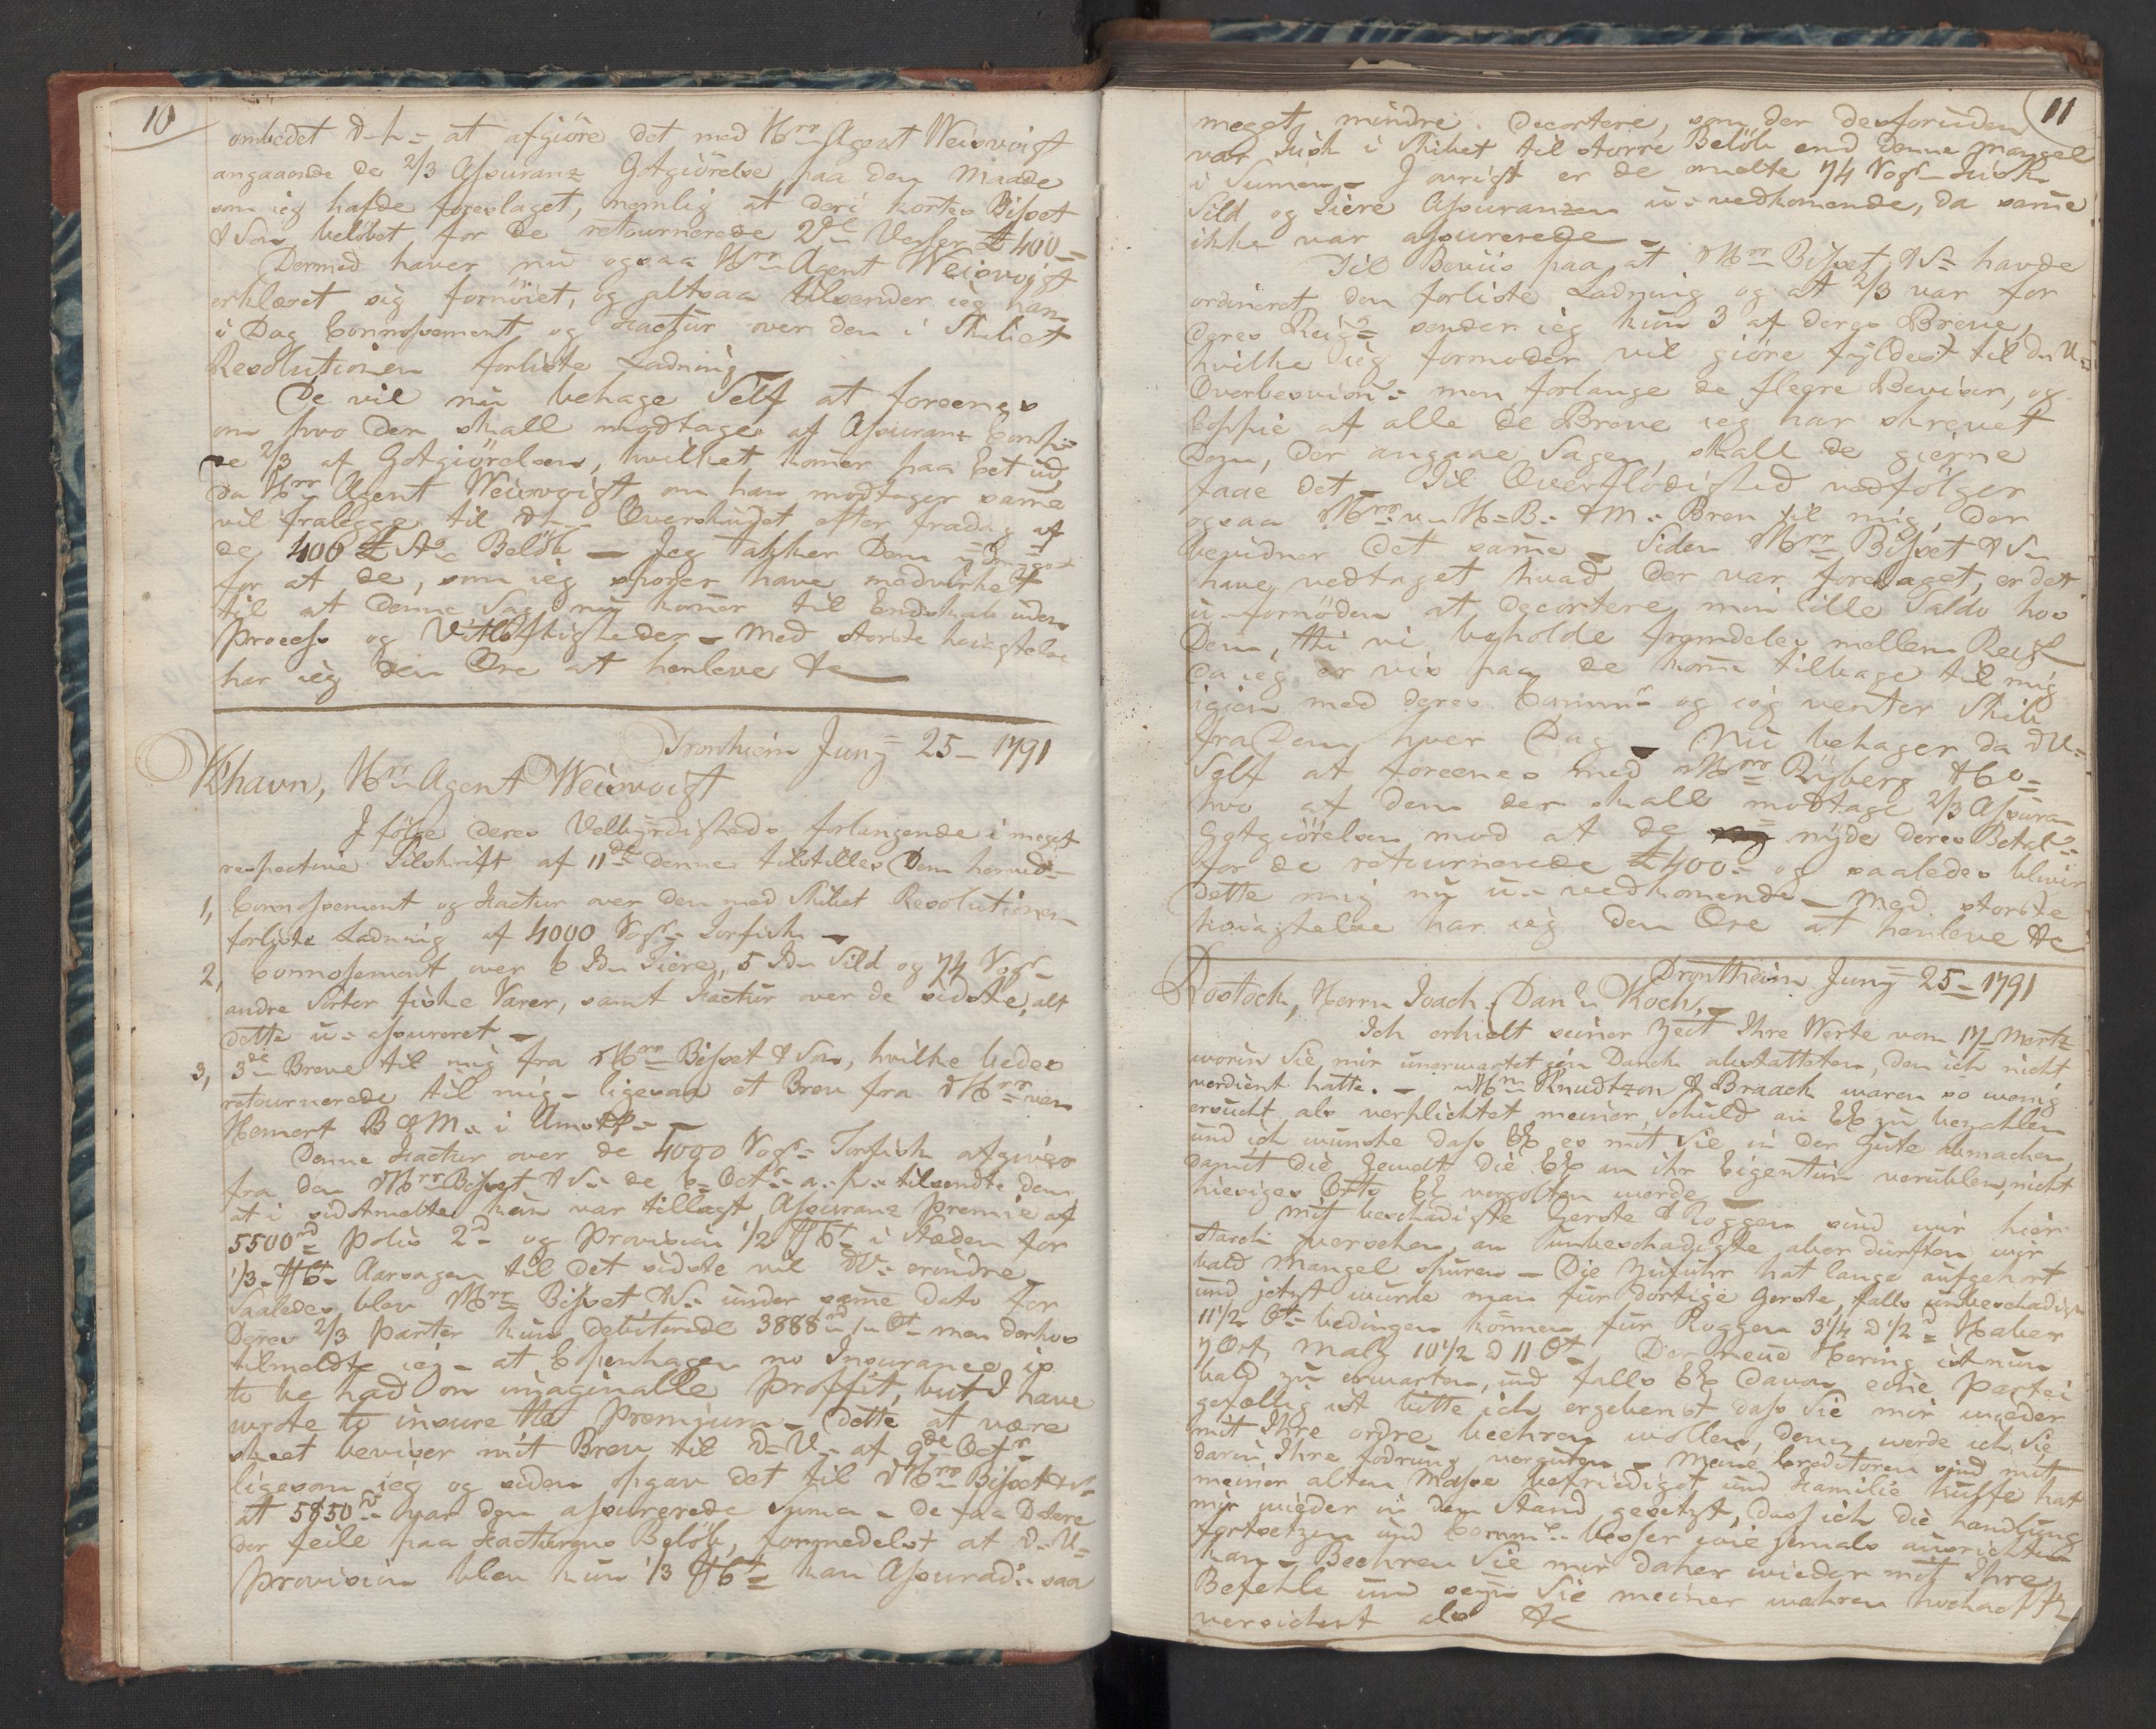 10
ombedet d-h- at afgiöre det med Hrr Agent Weisvoigt
angaaende de 2/3 Assuranz Gotgiörelse paa den Maade
som ieg hafde foreslaget, nemlig at deri kortes Bisset
& Son belöbet for de retournerede 2de Vexler £ 400-
Dermed haver nu ogsaa Hrr Agent Weisvoigt
erklæret sig fornöiet, og altsaa tilsender ieg ham
i Dag Connossement og Factur over den i Skibet
Resolutionen forliste Ladning
De vil nu behage Self at foreenes
om hvo der skall modtage af Assuranz Comp:
de 2/3 af Gotgiörelsen, hvilket komer paa Eet ud
da Hrr Agent Weisvoigt om han modtager same
vil fralegge til dh- Overskudet efter fradag af
de 400 £ St. Belöb - Jeg takker Dem
for at de, som ieg sporer have medvirket
til at denne Sag nu komer til Endskab uden
Process og Vitlöftigheder - Med störste höiagtelse
har ieg den Ære at henleve &c
Tronhiem Juny 25- 1791
Khavn, Hrr Agent Weisvoigt
I fölge deres Velbyrdigheds forlangende i meget
respective Tilskrift af 11de denne tilstilles Dem herved
1, Connossement og Factur over den med Skibet Resolutionen
forliste Ladning af 4000 Vogr Torfisk -
2, Connossement over 6 Tiere, 5 Sild og 74 Vogr
andre Sorter fiske Varer, samt Factur over de sidste, alt
dette u- assureret -
3, 3de Breve til mig fra Hrr Bisset & Son, hvilke bedes
retournerede til mig - ligesaa et Brev fra Hrr van
Hemert B & M. i Amst.
Denne Factur over de 4000 Vogr Torfisk afgives
fra den Hrr Bisset & S. de 6 Octr a. p. tilsendte dem
at i sidstmelte kun var tillagt Assuranz Premie af
5500 rd Polis 2 rd og Provision 1/2 pCt i Steden for
1/3 pCt Aarsagen til det sidste vil DV. erindre
Saaledes blev Hrr Bisset & S. under same dato for
Deres 2/3 Parter kun debiterede 3888 rd men derhos
tilmeldte ieg - at Copenhagen no Insurance is
to be had on imaginalle Proffit, but I have
wrote to insure the Premium - dette at være
skeet beviser mit Brev til DV. af 9de Octr
ligesom ieg og siden opgav det til Hrr Bisset & S.
at 5850 rd var den assurerede Suma - de faa Dalere
der feile paa Facturens Belöb, formedelst at DV.
Provision blev kun 1/3 pCt kan Assurad: saa
11
meget mindre decortere, som der desforuden
var Fisk i Skibet til större Belöb end denne mangel
i Sumen - I övrigt er de melte 74 Vogr Fisk
Sild og Tiere Assuranzen u- vedkomende, da same
ikke var assurerede -
Til Beviis paa at Hrr Bisset & S. havde
ordineret den forliste Ladning og at 2/3 var for
deres Reig: sender ieg kun 3 af deres Breve,
hvilke ieg formoder vil giöre fyldest til d. V.
Overbevisn: men forlange de flere Beviser, og
Coppie af alle de Breve ieg har skrevet
Dem, der angaae Sagen, skall de gierne
faae det - Til Overflödighed vedfölger
ogsaa Hrr v. H. B. & M. Brev til mig, der
bevidner det same - Siden Hrr Bisset & S.
have vedtaget hvad der var foreslaget, er det
u-fornöden at decortere min lille Saldo hos
Dem, thi vi beholde fremdeles mellem Reig:
da ieg er vis paa de kome tilbage til mig
igien med deres Commis: og ieg venter Skib
fra Dem hver Dag - Nu behager da DV.
Self at foreenes med Hrr Ryberg & Co
hvo af dem der skall modtage 2/3 Assura-
Gotgiörelsen mod at de nyde deres Betal:
for de retournerede £ 400 - og saaledes bliver
dette mig nu u- vedkomende - Med störste
höiagtelse har ieg den Ære at henleve &c
Drontheim Juny 25- 1791
Rostock, Herrn Joach. Danl Koch,
Ich erhielt seiner Zeit Ihre Werte von 17 Mertz
worin Sie mir unerwartet ein Danck abstatteten, den ich nicht
verdient hatte. - Hrn Knudtzon & Braack waren so wenig
ersucht als verplichtet meiner Schuld an EE zu bezahlen
und ich wünske dass EE es mit Sie in der Güte abmachen,
damit die Gewalt die EE an ihr Eigentum verüblen, nicht
hiesiges Orts EE vergolten werde -
Mit beschadigte Gerste & Roggen sind wir hier
starck versehen, an unbeschadigte aber dürften wir
bald Mangel spüren - Die Zufuhr hat lange aufgehört
und jetzt würde man für dortige Gerste, falls unbeschadigt
11 1/2 Ort bedingen können für Roggen 3 1/4 a 1/2 rd Haber
7 Ort, Maltz 10 1/2 a 11 Ort. Der neue Hering ist nun
bald zu erwarten, und falls EE davon eine Partei
gefællig ist bitte ich ergebenst dass Sie mir wieder
mit Ihre ordre beehren wollen, denn werde ich Sie
darin Ihre fodrung vergüten - Meine Creditoren sind mit
meiner alten Masse befriediget und Familie hülfe hat
mir wieder in den Stand gesetzt, dass ich die handlung
fortsetzen und Comm: besser wie jemals ausrichten
kan - Beehren Sie mir daher wieder mit Ihre
Befehle und seyn Sie meiner wahren hochacht:
versichert als &c